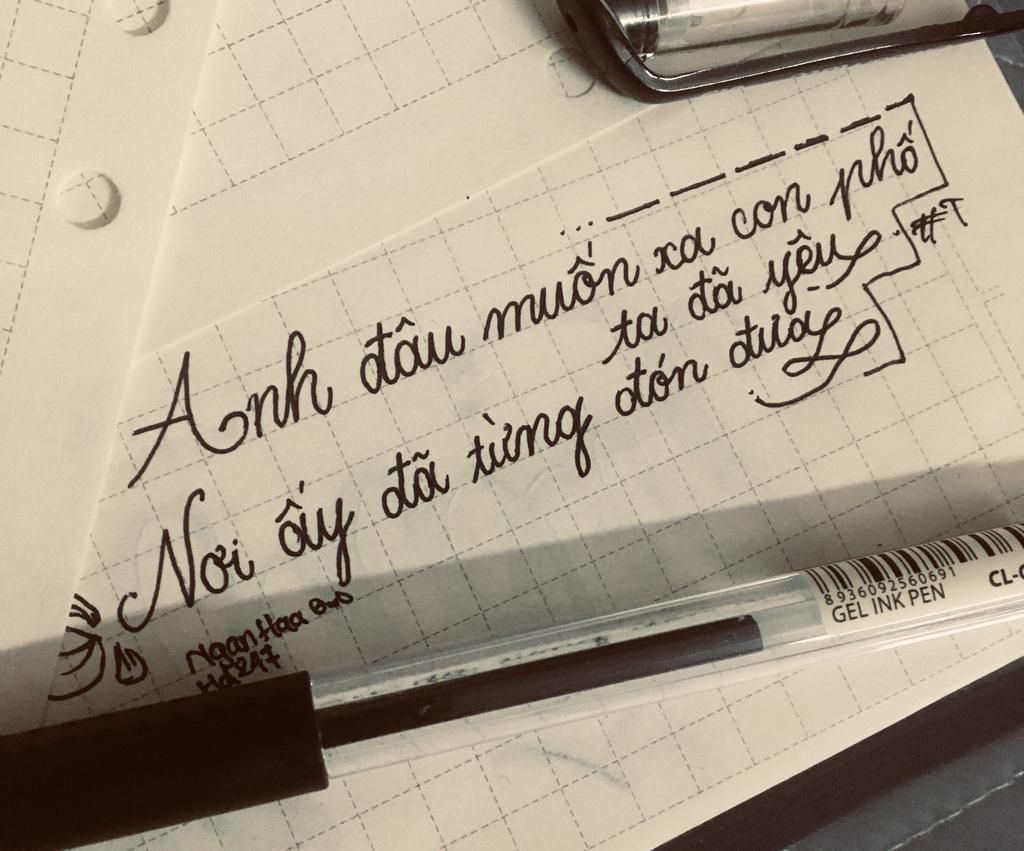 Anh đâu muốn xa con phố
ta đã yêu
Nơi ấy đã từng đón đưa
#T
NganHaa OwO
Hd2A7
8 936092 560691
GEL INK PEN
CL-